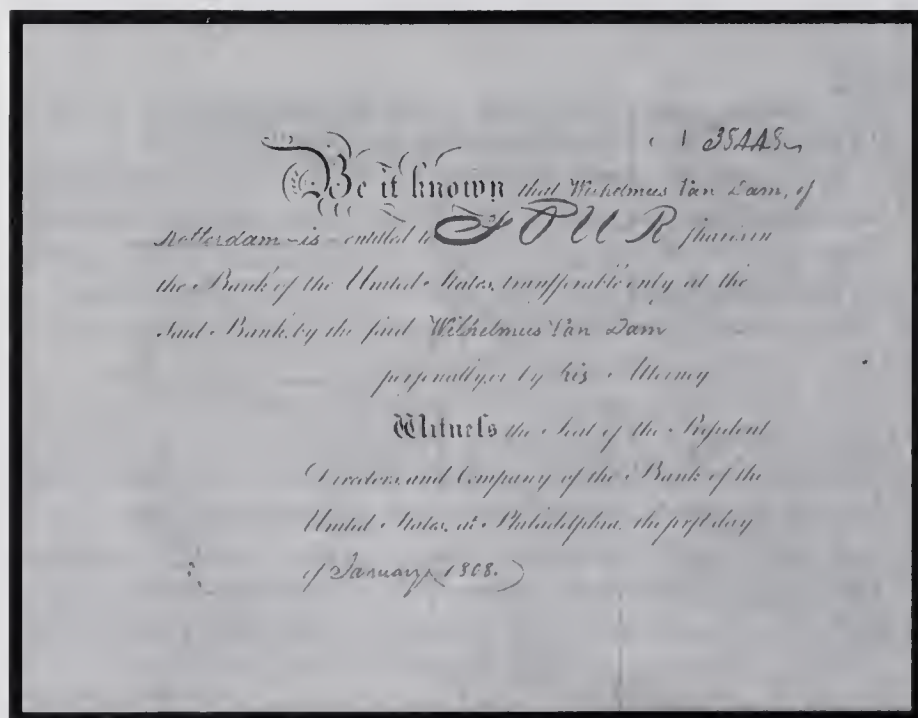 35445
Be it known that Wilhelmus Van Dam, of
Rotterdam - is - entitled to FOUR shares in
the Bank of the United States, transferrable only at the
Said Bank, by the said Wilhelmus Van Dam
personally or by his Attorney
Witness the Seal of the President
Directors and Company of the Bank of the
United States, at Philadelphia, the first day
of January (1808.)